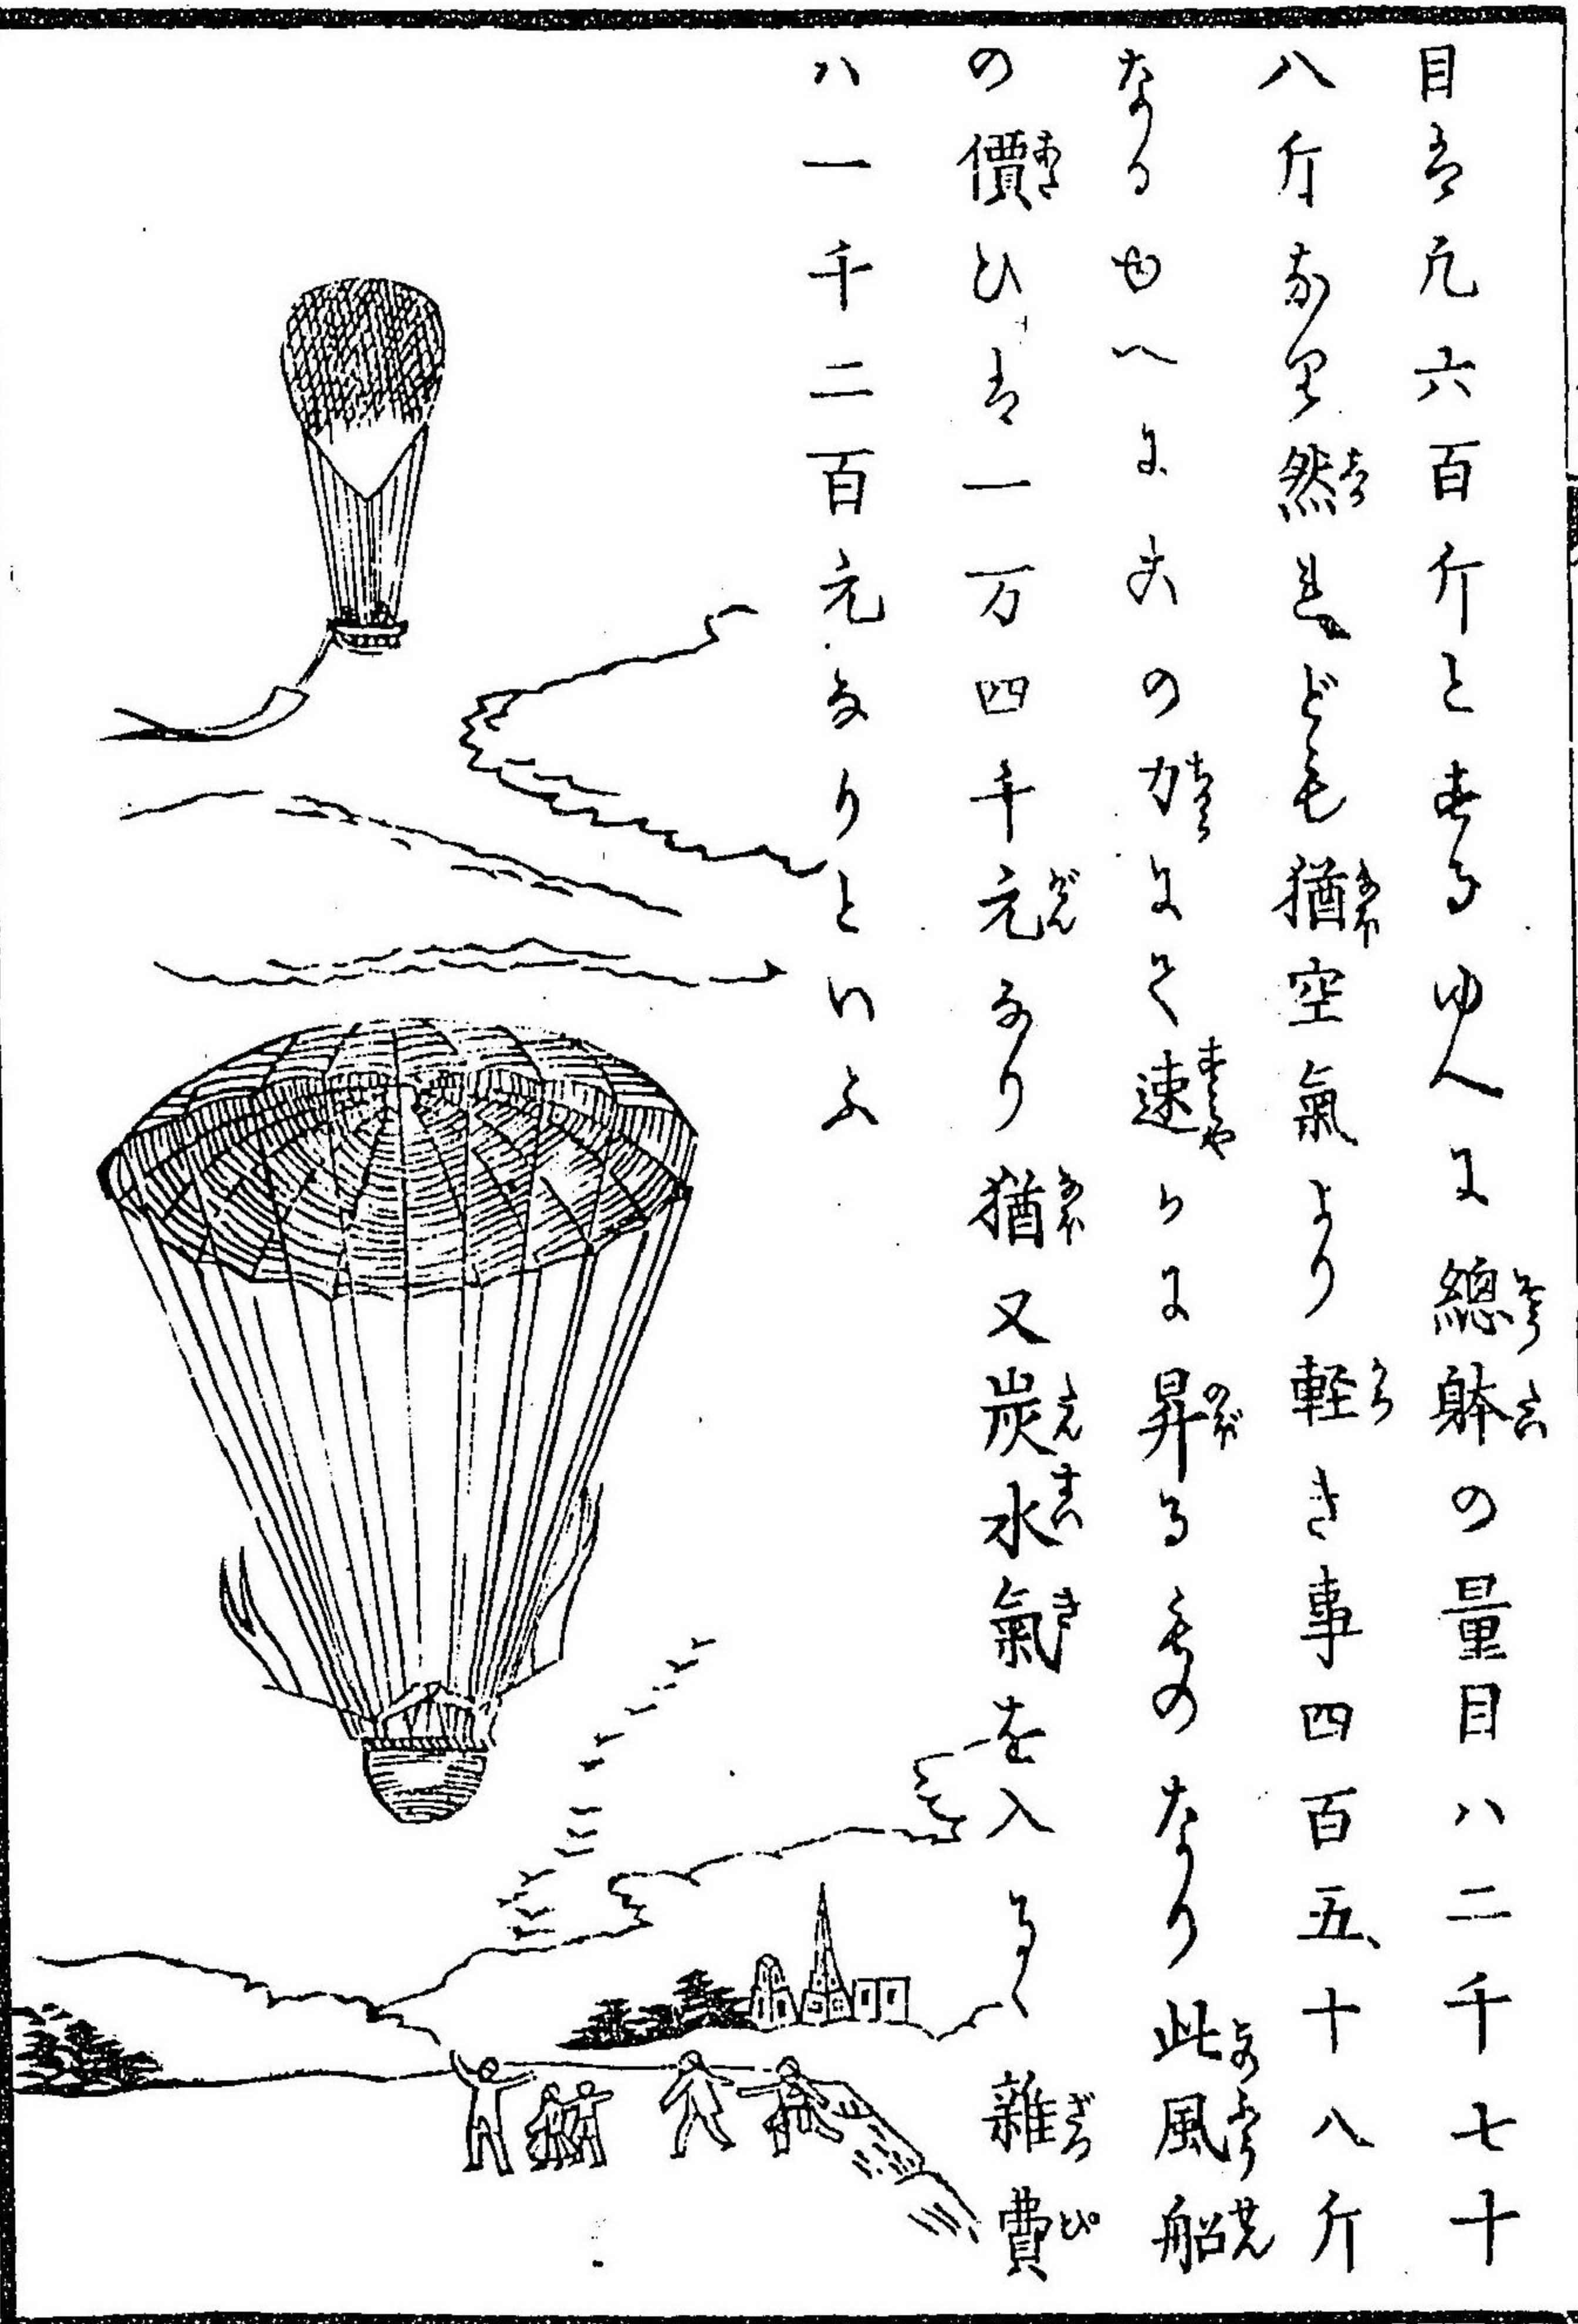 目は凡六百斤とするゆへに總躰の量目ハ二千七十
八斤なり然れども猶空氣より軽き事四百五十八斤
なるゆへにこの力にて速かに昇るものなり此風船
の價ひは一万四千元なり猶又炭水氣を入るゝ雜費
ハ一千二百元なりといふ